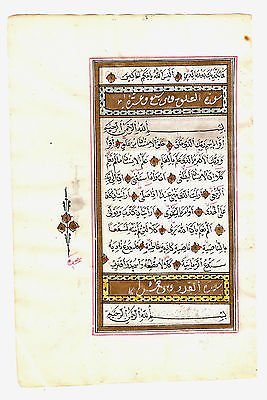 فما يكذبك بعد بالدين اليس الله باحكم الحاكمين
سورة العلق
بسم الله الرحمن الرحيم
اقرأ باسم ربك الذي خلق خلق الانسان من علق
اقرأ وربك الاكرم الذي علم بالقلم علم الانسان ما لم
يعلم كلا ان الانسان ليطغى ان رآه استغنى ان الى
ربك الرجعى ارأيت الذي ينهى عبدا اذا صلى ارأيت
ان كان على الهدى او امر بالتقوى ارأيت ان كذب وتولى
الم يعلم بان الله يرى كلا لئن لم ينته لنسفعا
بالناصية ناصية كاذبة خاطئة فليدع ناديه
سندع الزبانية كلا لا تطعه واسجد واقترب
سورة القدر
بسم الله الرحمن الرحيم